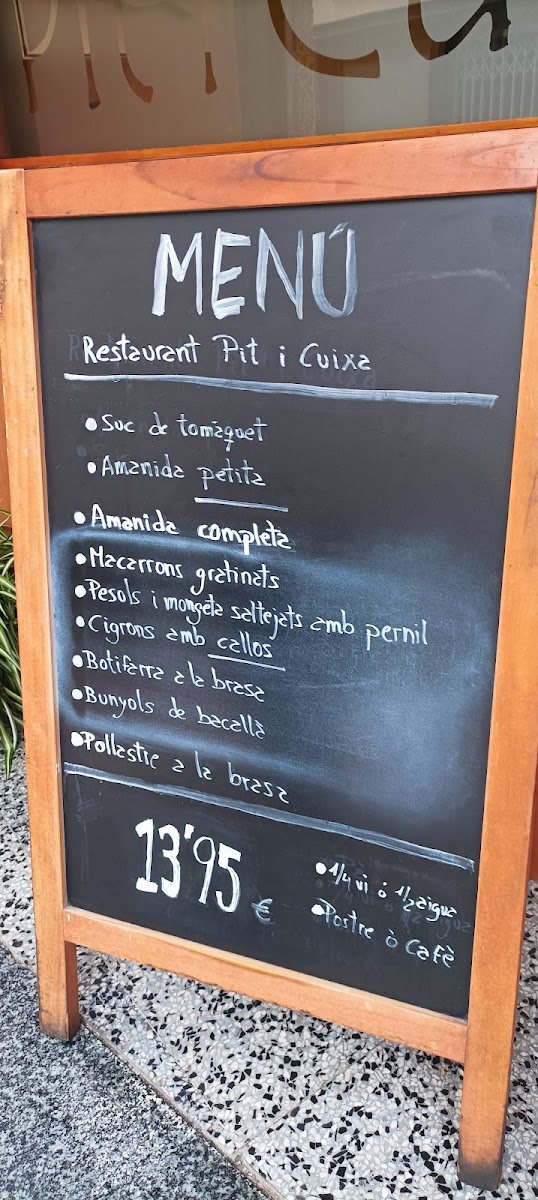 MENÚ
Restaurant Pit i Cuixa
• Suc de tomàquet
• Amanida petita
• Amanida completa
• Macarrons gratinats
• Pesols i mongeta saltejats amb pernil
• Cigrons amb callos
• Botifarra a la brasa
• Bunyols de bacallà
• Pollastre a la brasa
13'95 €
• 1/4 vi ó 1/2 aigua
• Postre ò Cafè